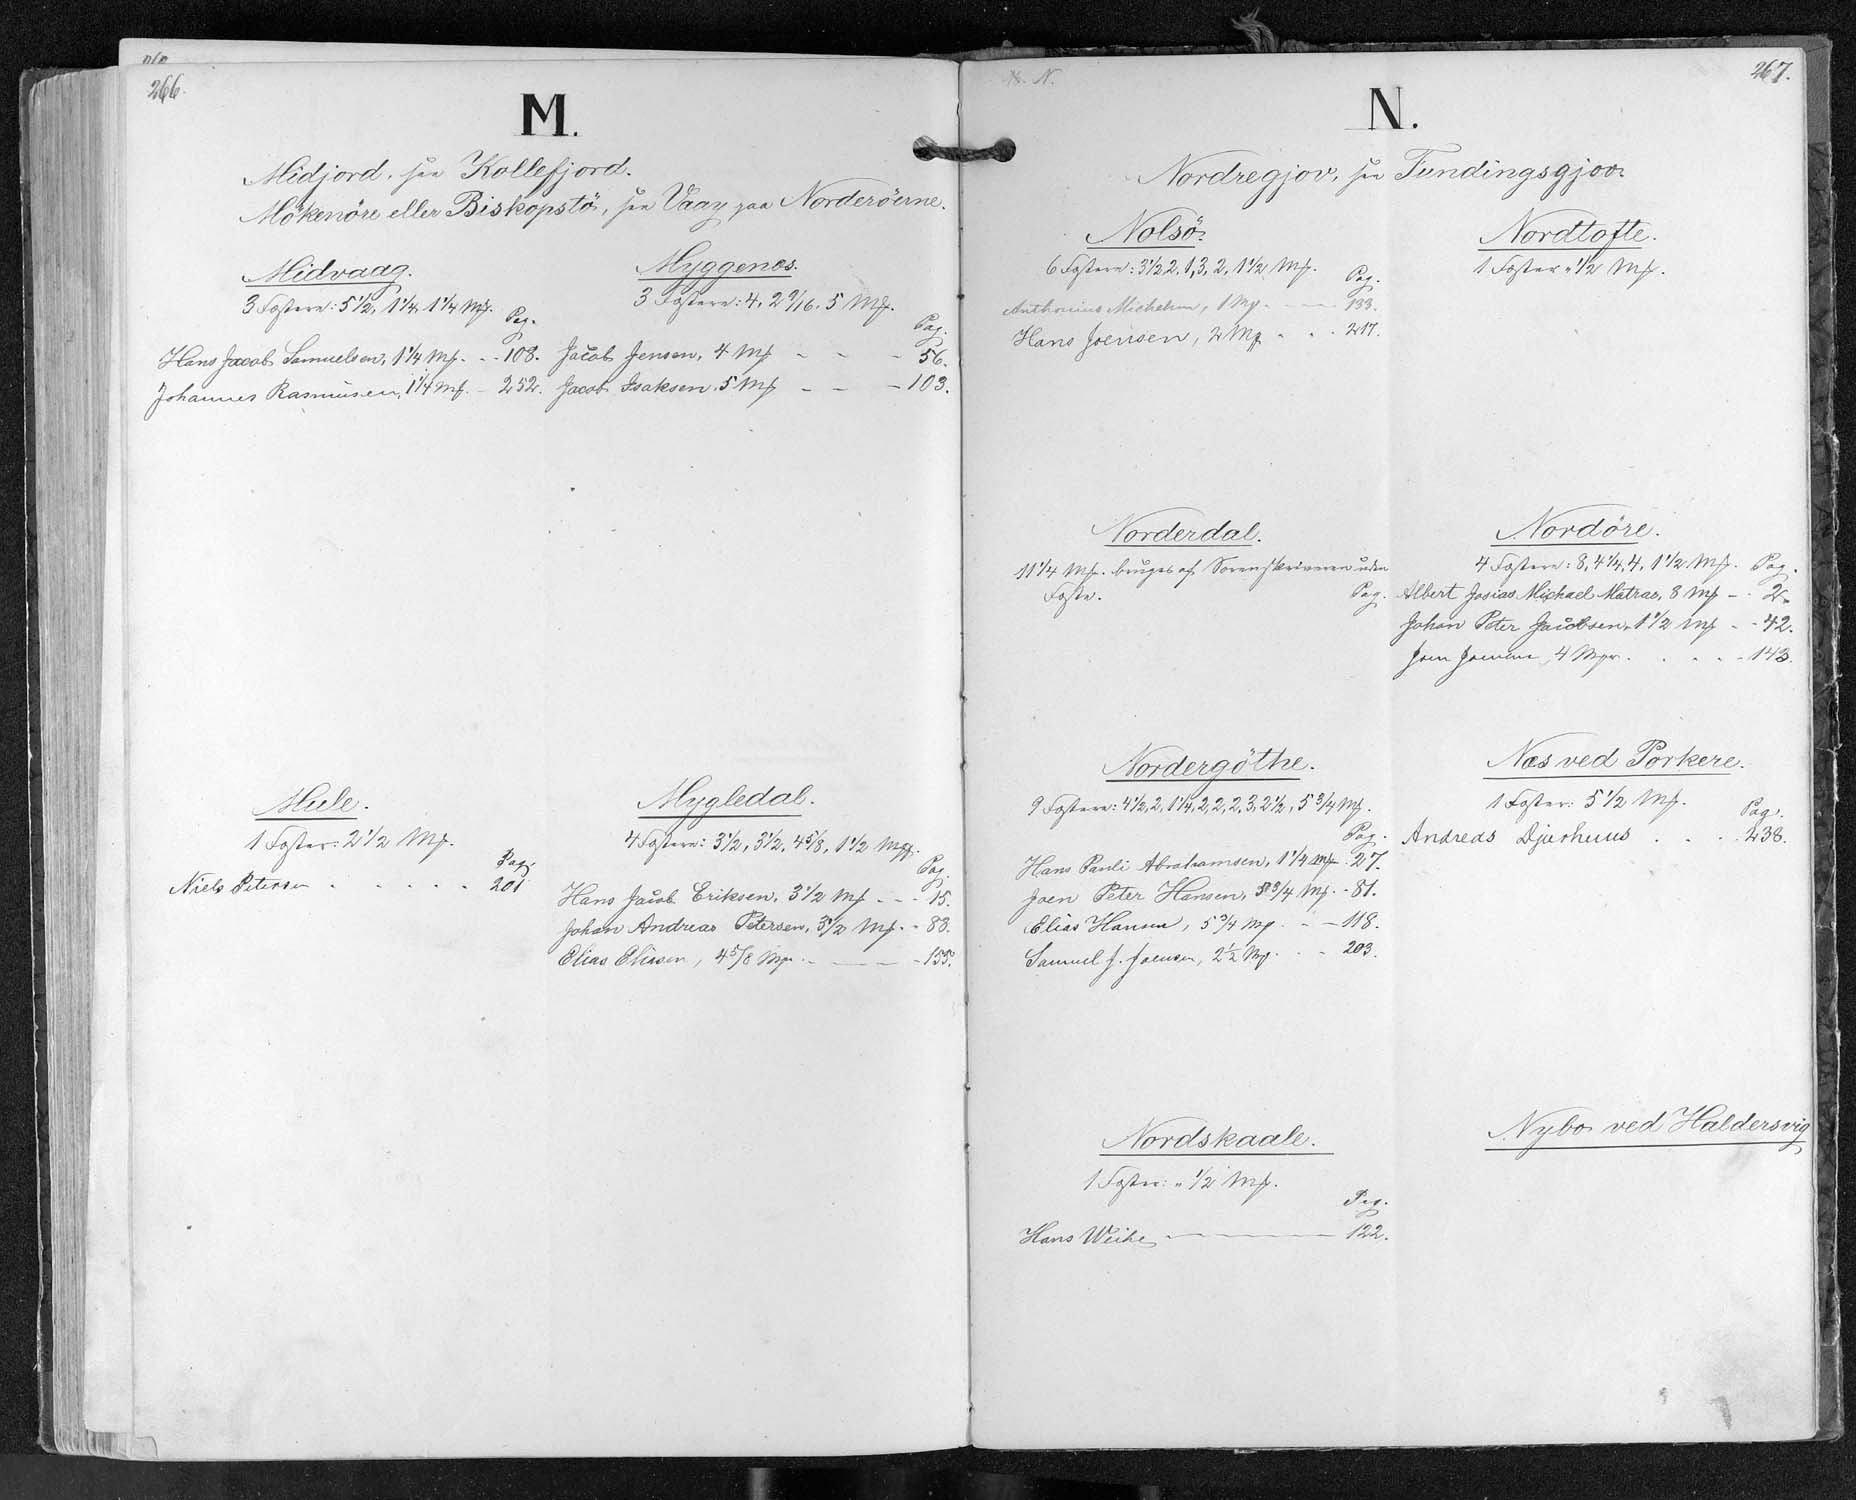 266.
M.
Midjord, see Kollefjord.
Mökenöre eller Biskopstö, see Vaag paa Norderöerne.
Midvaag.
3 Fæstere: 5 1/2, 1 1/4, 1 1/4 Mk.
Pag.
Hans Jacob Samuelsen, 1 1/4 Mk. - - 108.
Johannes Rasmussen, 1 1/4 Mk. - 252.
Myggenes.
3 Fæstere: 4, 2 9/16, 5 Mk.
Pag.
Jacob Jensen, 4 Mk - - - 56.
Jacob Isaksen, 5 Mk - - - 103.
Mule.
1 Fæster: 2 1/2 Mk.
Pag.
Niels Petersen . . . . . 201
Mygledal.
4 Fæstere: 3 1/2, 3 1/2, 4 5/8, 1 1/2 Mk.
Pag.
Hans Jacob Eriksen, 3 1/2 Mk - - - 15.
Johan Andreas Petersen, 3 1/2 Mk. - 83.
Elias Eliasen, 4 5/8 Mk. - - - 155.
N.
267.
N.
Nordregjov, see Fundingsgjov.
Nolsö.
6 Fæstere: 3 1/2, 2, 1, 3, 2, 1 1/2 Mk.
Pag.
Anthonius Michelsen, 1 Mk. - - - 133.
Hans Joensen, 2 Mk . . . 217.
Nordtofte.
1 Fæster " 1/2 Mk.
Norderdal.
11 1/4 Mk. bruges af Sorenskriveren uden
Fæste.
Pag.
Nordöre.
4 Fæstere: 8, 4 1/4, 4, 1 1/2 Mk. Pag.
Albert Josias Michael Matras, 8 Mk - . 2.
Johan Peter Jacobsen, 1 1/2 Mk - - 42.
Joen Joensen, 4 Mk. . . . . - 143.
Nordergöthe.
9 Fæstere: 4 1/2, 2, 1 1/4, 2, 2, 2, 3, 2 1/2, 5 3/4 Mk.
Pag.
Hans Pauli Abrahamsen, 1 1/4 Mk - 27.
Joen Peter Hansen, 5 3/4 Mk. - 81.
Elias Hansen, 5 3/4 Mk. - - 118.
Samuel J. Joensen, 2 1/2 Mk. . . 203.
Næs ved Porkere.
1 Fæster: 5 1/2 Mk.
Pag.
Andreas Djurhuus . . . 238.
Nordskaale.
1 Fæster: " 1/2 Mk.
Pag.
Hans Weihe - - - - - 122.
Nybo ved Haldersvig